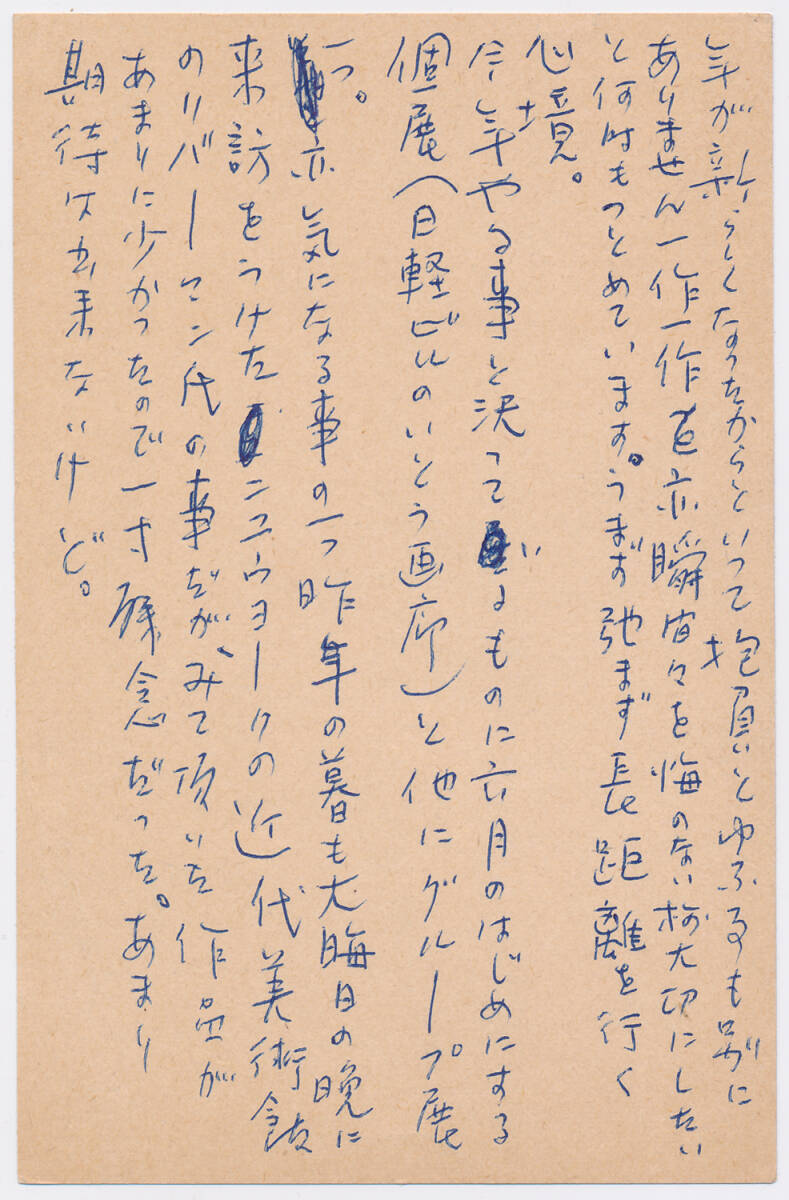 年が新らしくなったからといって抱負とゆふ事も別に
ありません一作一作を亦瞬間々を悔のない様大切にしたい
と何時もつとめています。うまず弛まず長距離を行く
心境。
今年やる事と決っているものに六月のはじめにする
個展(日軽ビルのいとう画廊)と他にグループ展
一つ。
亦気になる事の一つ昨年の暮も大晦日の晩に
来訪をうけたニユウヨークの近代美術館
のリバーマン氏の事だが、みて頂いた作品が
あまりに少かったので一寸残念だった。あまり
期待は出来ないけど。